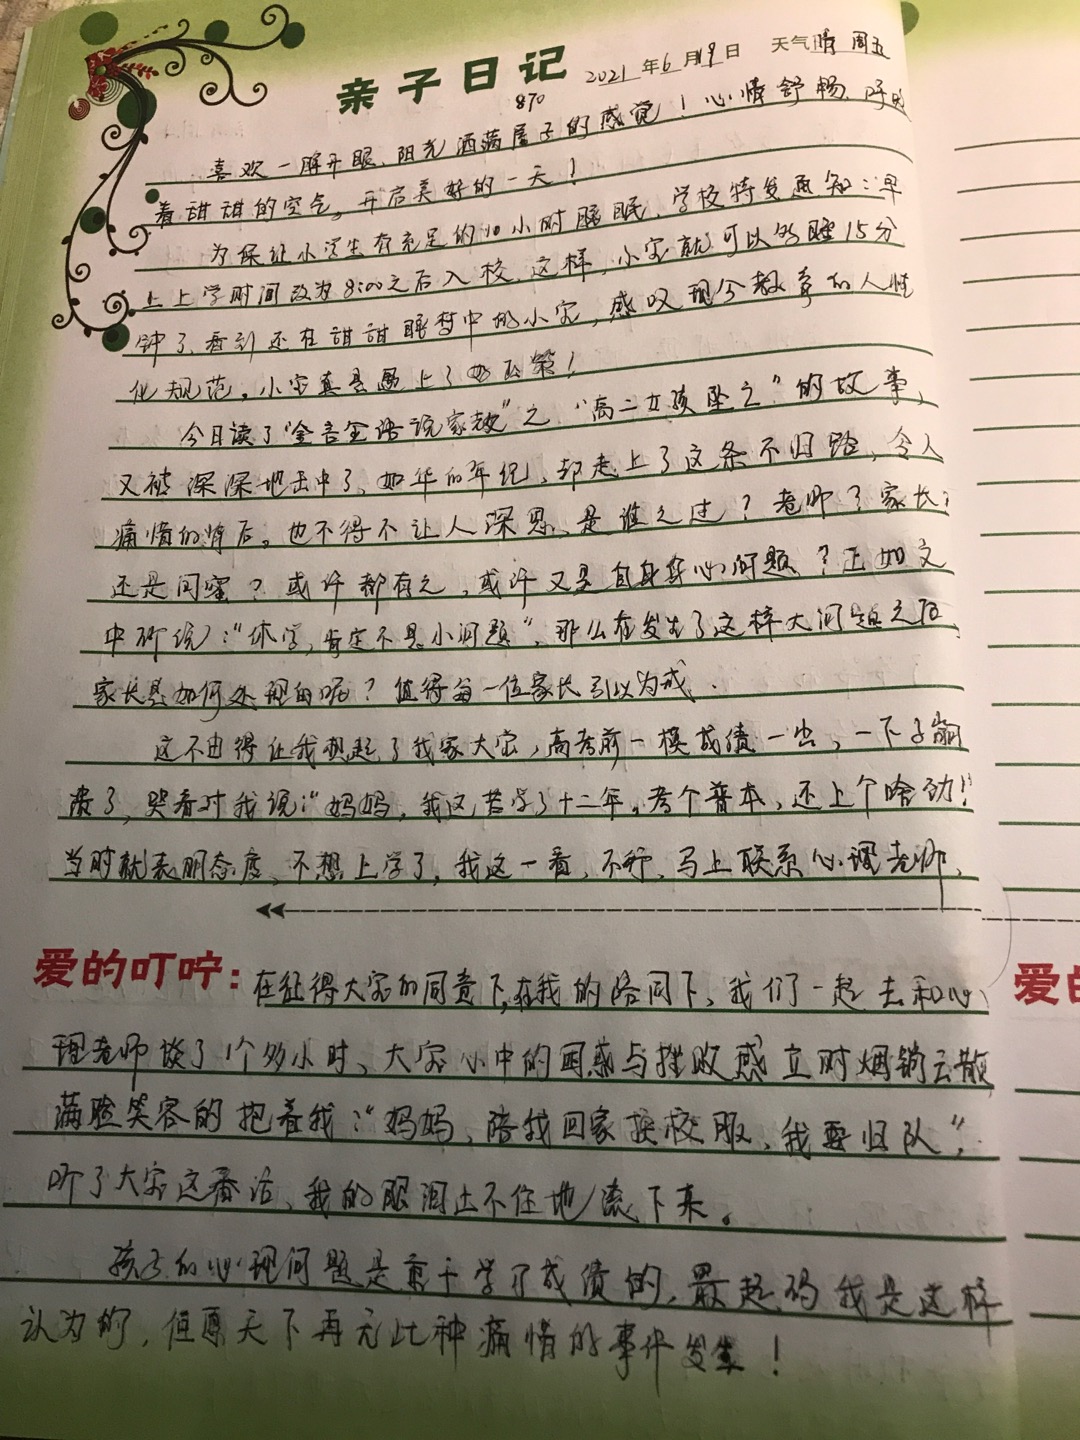 亲子日记 2021年6月19日 天气晴 周五
870
喜欢一睁开眼、阳光洒满屋子的感觉！心情舒畅、呼吸
着甜甜的空气。开启美好的一天！
为保证小学生有充足的10小时睡眠、学校特发通知：早
上上学时间改为8:00之后入校、这样，小宝就可以多睡15分
钟了、看到还在甜甜眠梦中的小宝，感叹现今教育的人性
化规范。小宝真是遇上了好政策！
今日读了“金言金语说家教”之“高二女孩坠之”的故事，
又被深深地击中了、如华的年纪、却走上了这条不归路、令人
痛惜的背后。也不得不让人深思、是谁之过？老师？家长？
还是同学？或许都有之，或许又是自身身心问题？正如文
中所说：“休学，肯定不是小问题”、那么在发生了这样大问题之后、
家长是如何处理的呢？值得每一位家长引以为戒．
这不由得让我想起了我家大宝，高考前一模成绩一出，一下子崩
溃了，哭着对我说：“妈妈，我这苦学了十二年。考个普本，还上个啥劲！”
当时就表明态度、不想上学了，我这一看、不行、马上联系心理老师、
爱的叮咛：在征得大宝的同意下，在我的陪同下、我们一起去和心
理老师谈了1个多小时、大宝心中的困惑与挫败感立时烟销云散
满脸笑容的抱着我：“妈妈，陪我回家换校服、我要归队”，
听了大宝这番话、我的眼泪止不住地流下来。
孩子的心理问题是重于学习成绩的，最起码我是这样
认为的，但愿天下再无此种痛惜的事件发生！
爱的